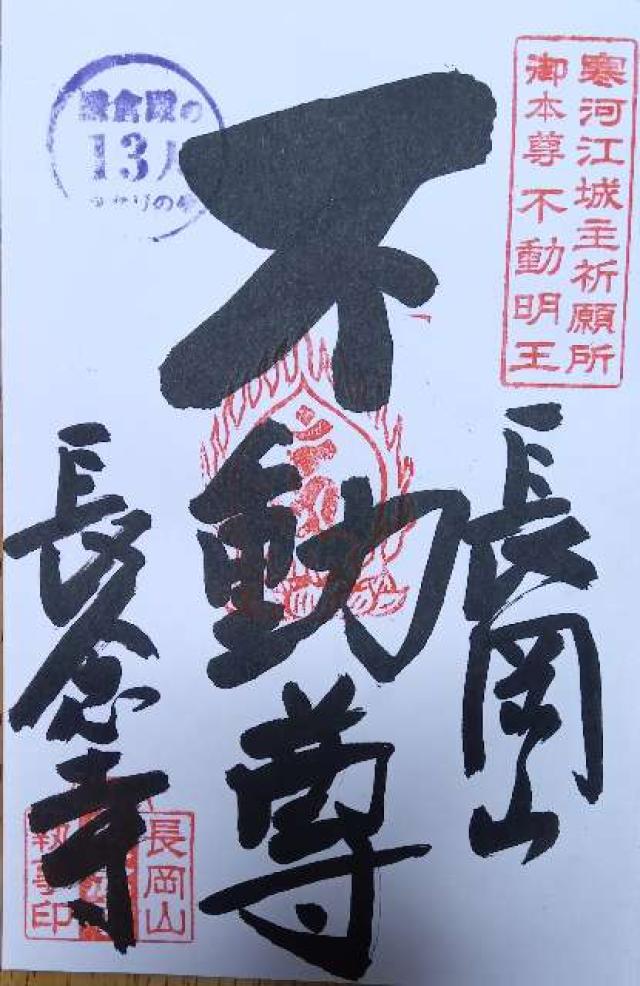 寒河江城主祈願所
御本尊不動明王
長岡山
不動尊
鎌倉殿の
13人
長念寺
長岡山
執事印